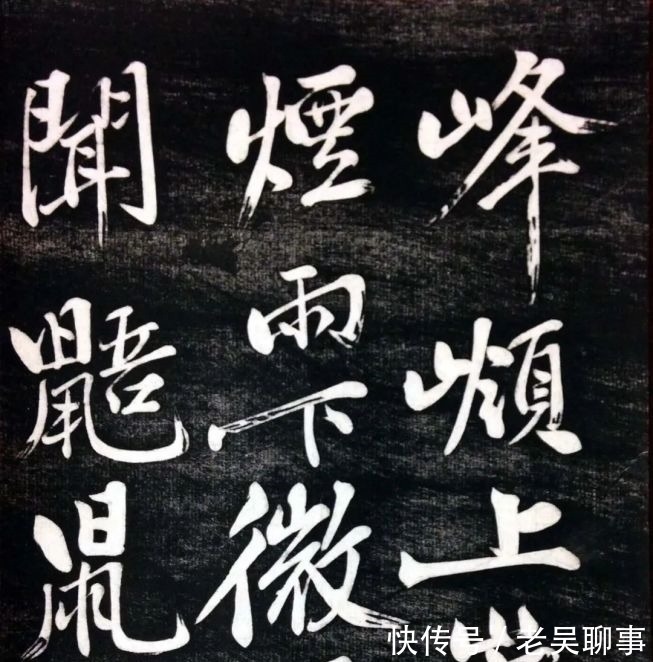 峰 上
煙雨下微
聞鼯鼠
快传号 / 老吴聊事